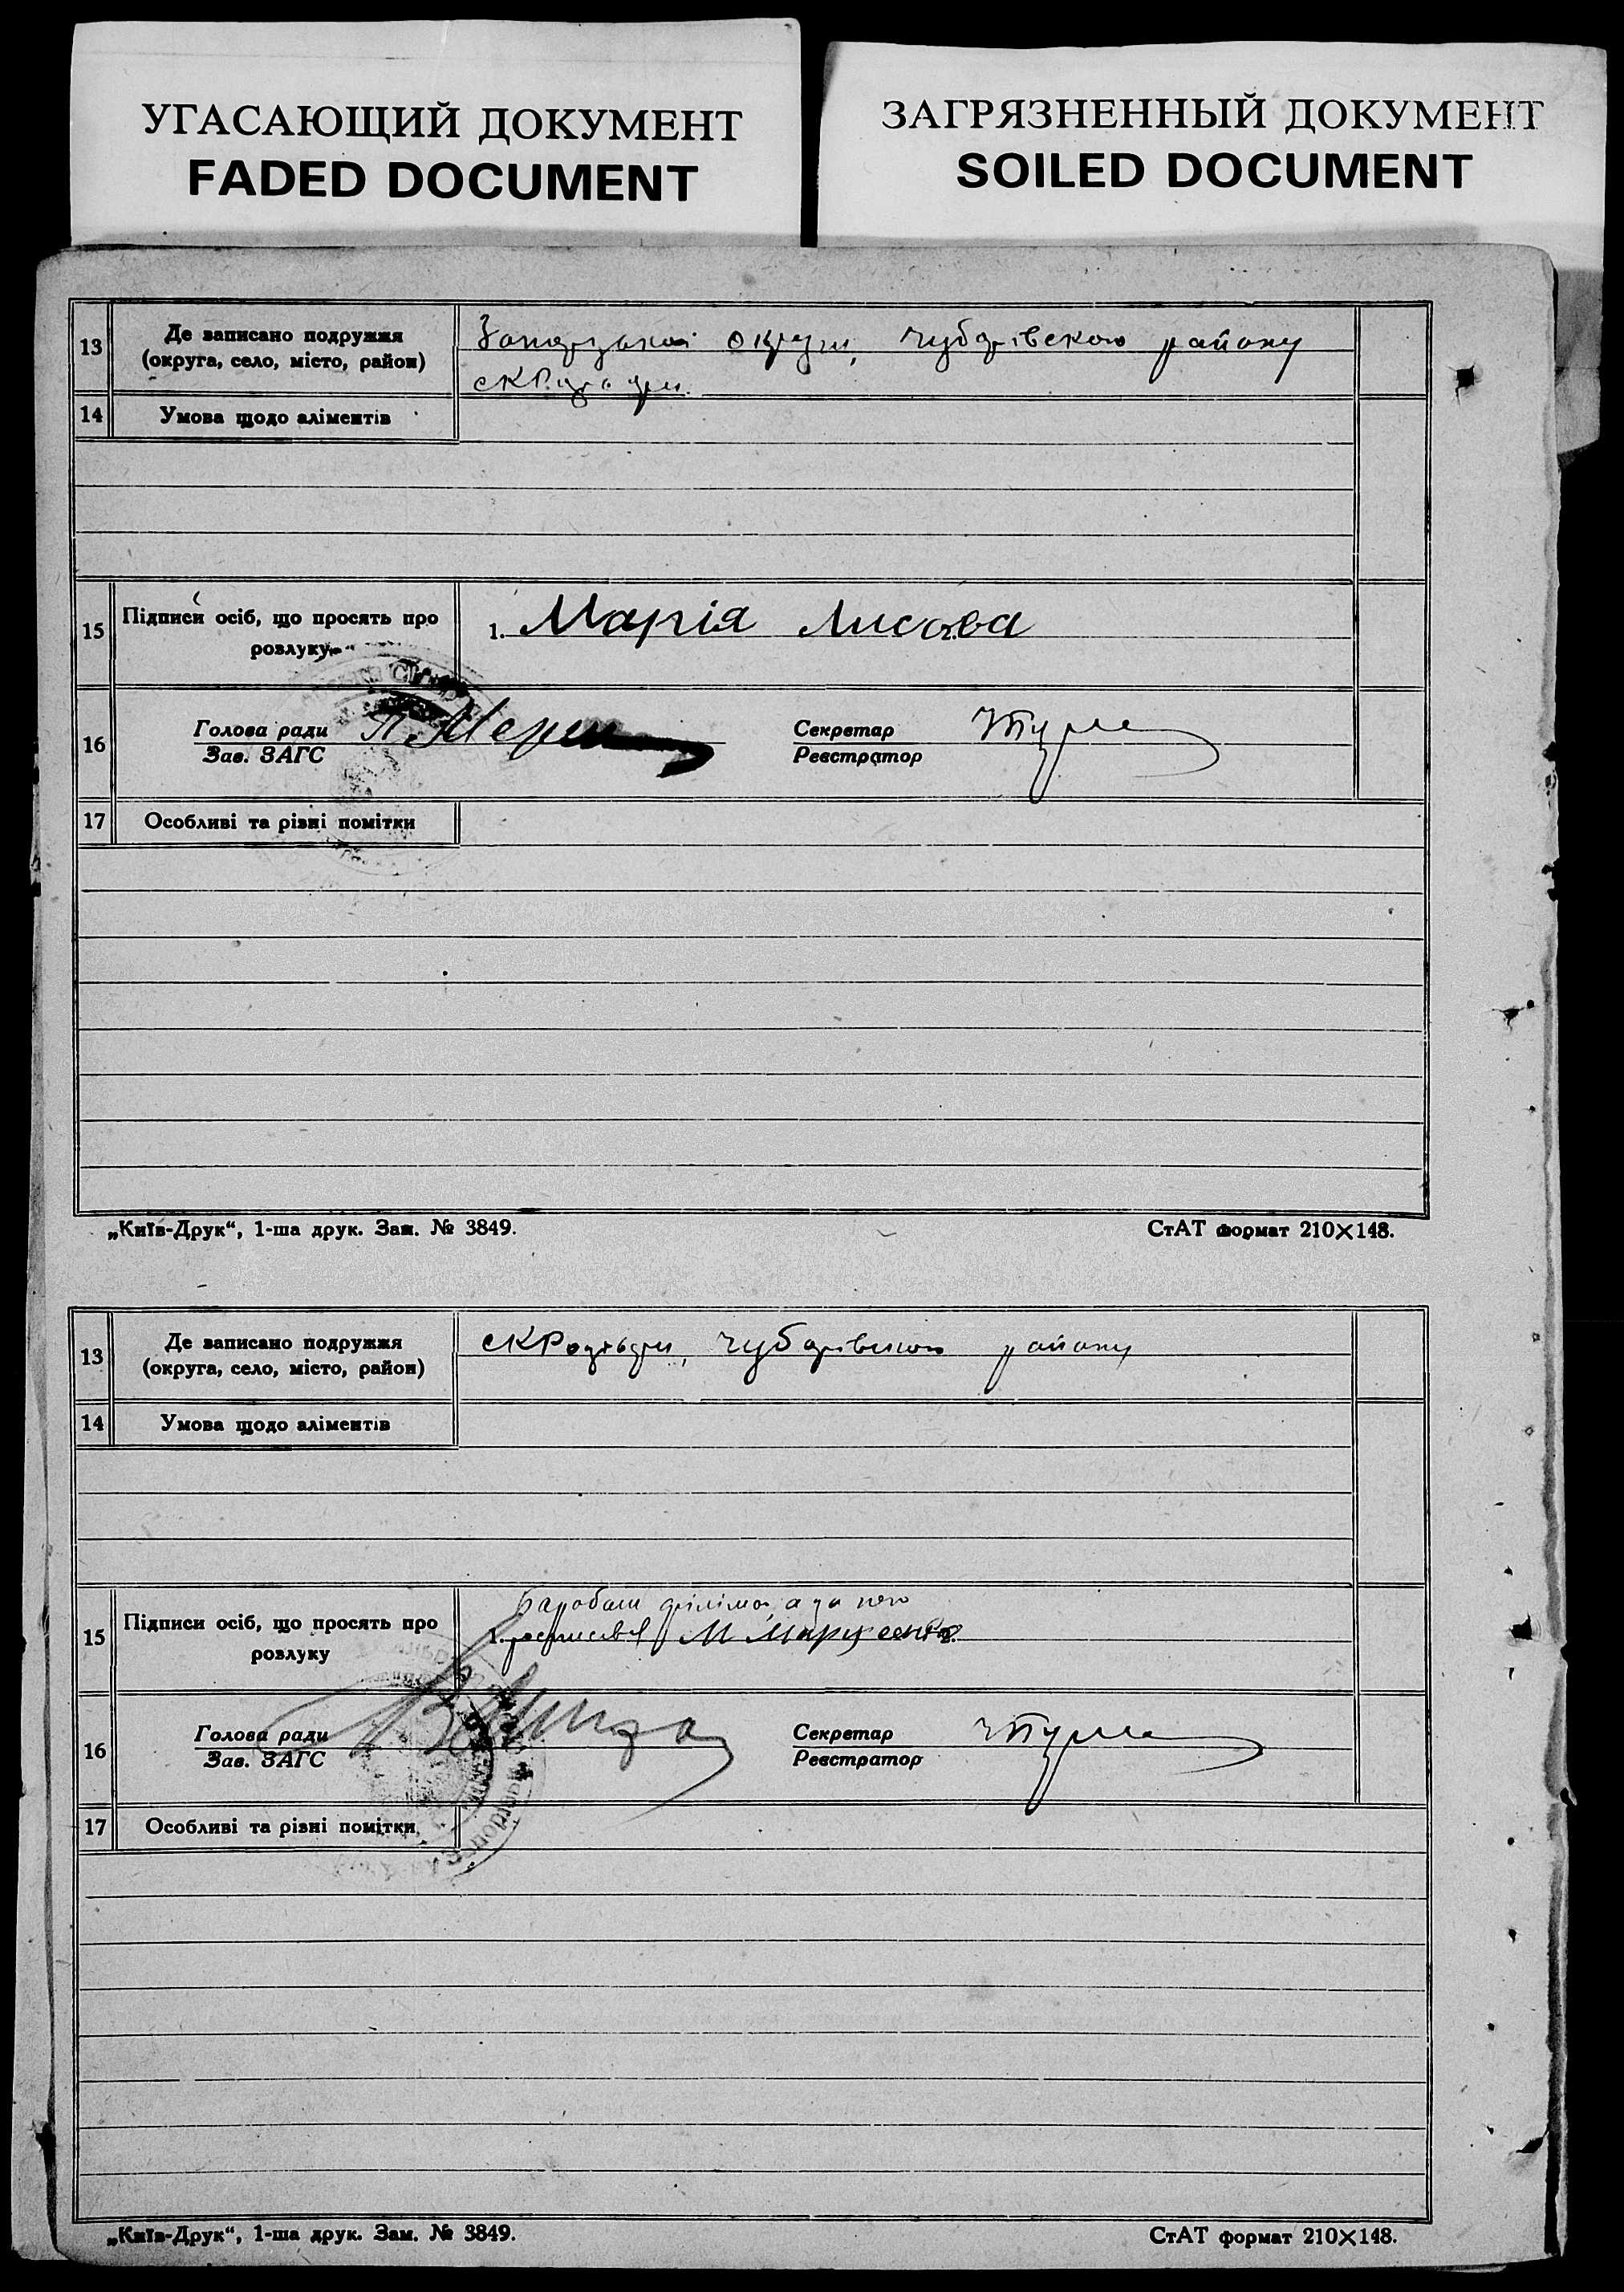 УГАСАЮЩИЙ ДОКУМЕНТ
FADED DOCUMENT
ЗАГРЯЗНЕННЫЙ ДОКУМЕНТ
SOILED DOCUMENT
13
Де записано подружжя
(округа, село, місто, район)
округи, Чубарівского району
14
Умова щодо аліментів
15
Підписи осіб, що просять про
розлуку
1. Марія Лисова
16
Голова ради
Зав. ЗАГС
Секретар
Реєстратор
17
Особливі та різні помітки
„Київ-Друк“, 1-ша друк. Зам. № 3849.
СтАТ формат 210×148.
13
Де записано подружжя
(округа, село, місто, район)
Чубарівского району
14
Умова щодо аліментів
15
Підписи осіб, що просять про
розлуку
а за него
1.
16
Голова ради
Зав. ЗАГС
Секретар
Реєстратор
17
Особливі та різні помітки
„Київ-Друк“, 1-ша друк. Зам. № 3849.
СтАТ формат 210×148.